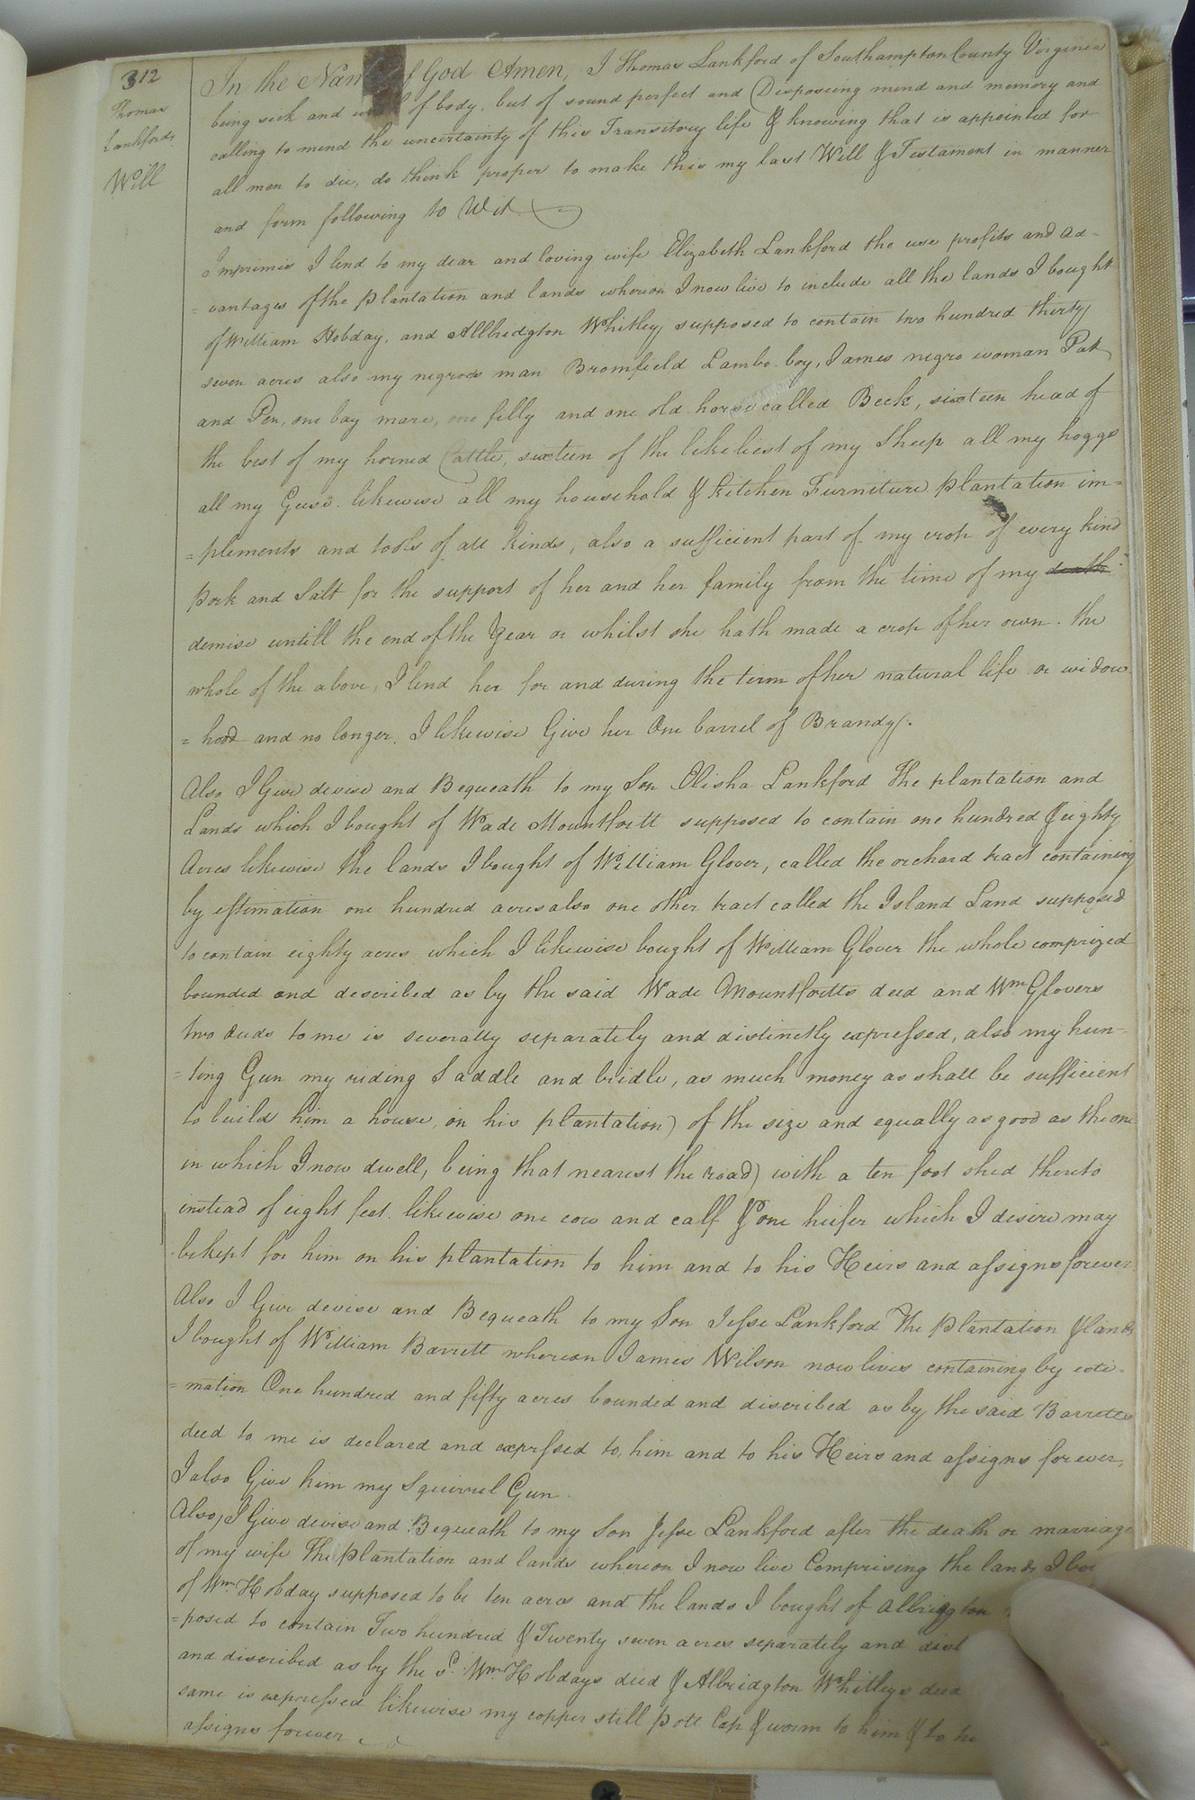 312
Thomas
Lankfords
Will
In the Nam f God Amen, I Thomas Lankford of Southampton County Virginia
being sick and w of body, but of sound perfect and Disposeing mind and memory and
calling to mend the uncertainty of this Transitory life & knowing that is appointed for
all men to die, do think proper to make this my last Will & Testament in manner
and form following to Wit
Imprimis I lend to my dear and loving wife Elizabeth Lankford the use profits and ad-
vantages of the plantation and lands whereon I now live to include all the lands I bought
of William Hobday, and Allbridgton Whitley supposed to contain two hundred thirty
seven acres also my negroes man Bromfield Lambo boy, James negro woman Pat
and Pen, one bay mare, one filly and one old horse called Beck, sixteen head of
the best of my horned Cattle, sixteen of the likeliest of my Sheep all my hoggs
all my Geese. likewise all my household & kitchen Furniture plantation im=
=plements and tools of all kinds, also a sufficient part of my crop of every kind
pork and Salt for the support of her and her family from the time of my death
demise untill the end of the Year or whilst she hath made a crop of her own. the
whole of the above, I lend her for and during the term of her natural life or widow
=hood and no longer, I likewise Give her One barrel of Brandy.
Also I Give devise and Bequeath to my Son Elisha Lankford The plantation and
Lands which I bought of Wade Mountfortt supposed to contain one hundred & eighty
Acres likewise the lands I bought of William Glover, called the orchard tract containing
by estimation one hundred acres also one other tract called the Island Land supposed
to contain eighty acres which I likewise bought of William Glover the whole comprized
bounded and described as by the said Wade Mountfortts deed and Wm Glovers
two deeds to me is severally separately and distinctly expressed, also my hun-
=ting Gun my riding Saddle and bridle, as much money as shall be sufficient
to build him a house, on his plantation) of the size and equally as good as the one
in which I now dwell, being that nearest the road) with a ten foot shed thereto
instead of eight feet. likewise one cow and calf & one heifer which I desire may
be kept for him on his plantation to him and to his Heirs and assigns forever
Also I Give devise and Bequeath to my Son Jesse Lankford The Plantation & lands
I bought of William Barrett whereon James Wilson now lives containing by esti-
=mation One hundred and fifty acres bounded and discribed as by the said Barretts
deed to me is declared and exprssed to, him and to his Heirs and assigns forever,
I also Give him my Squirrel Gun.
Also, I Give devise and Bequeath to my Son Jesse Lankford after the death or marriage
of my wife The plantation and lands whereon I now live Comprising the lands I bo
of Wm Hobday supposed to be ten acres and the lands I bought of Albridgton
=posed to contain Two hundred & Twenty seven acres separately and dist
and discribed as by the sd Wm Hobdays deed & Albridgton Whitleys deed
same is expressed likewise my copper still pott Cap & worm to him & to he
assigns forever